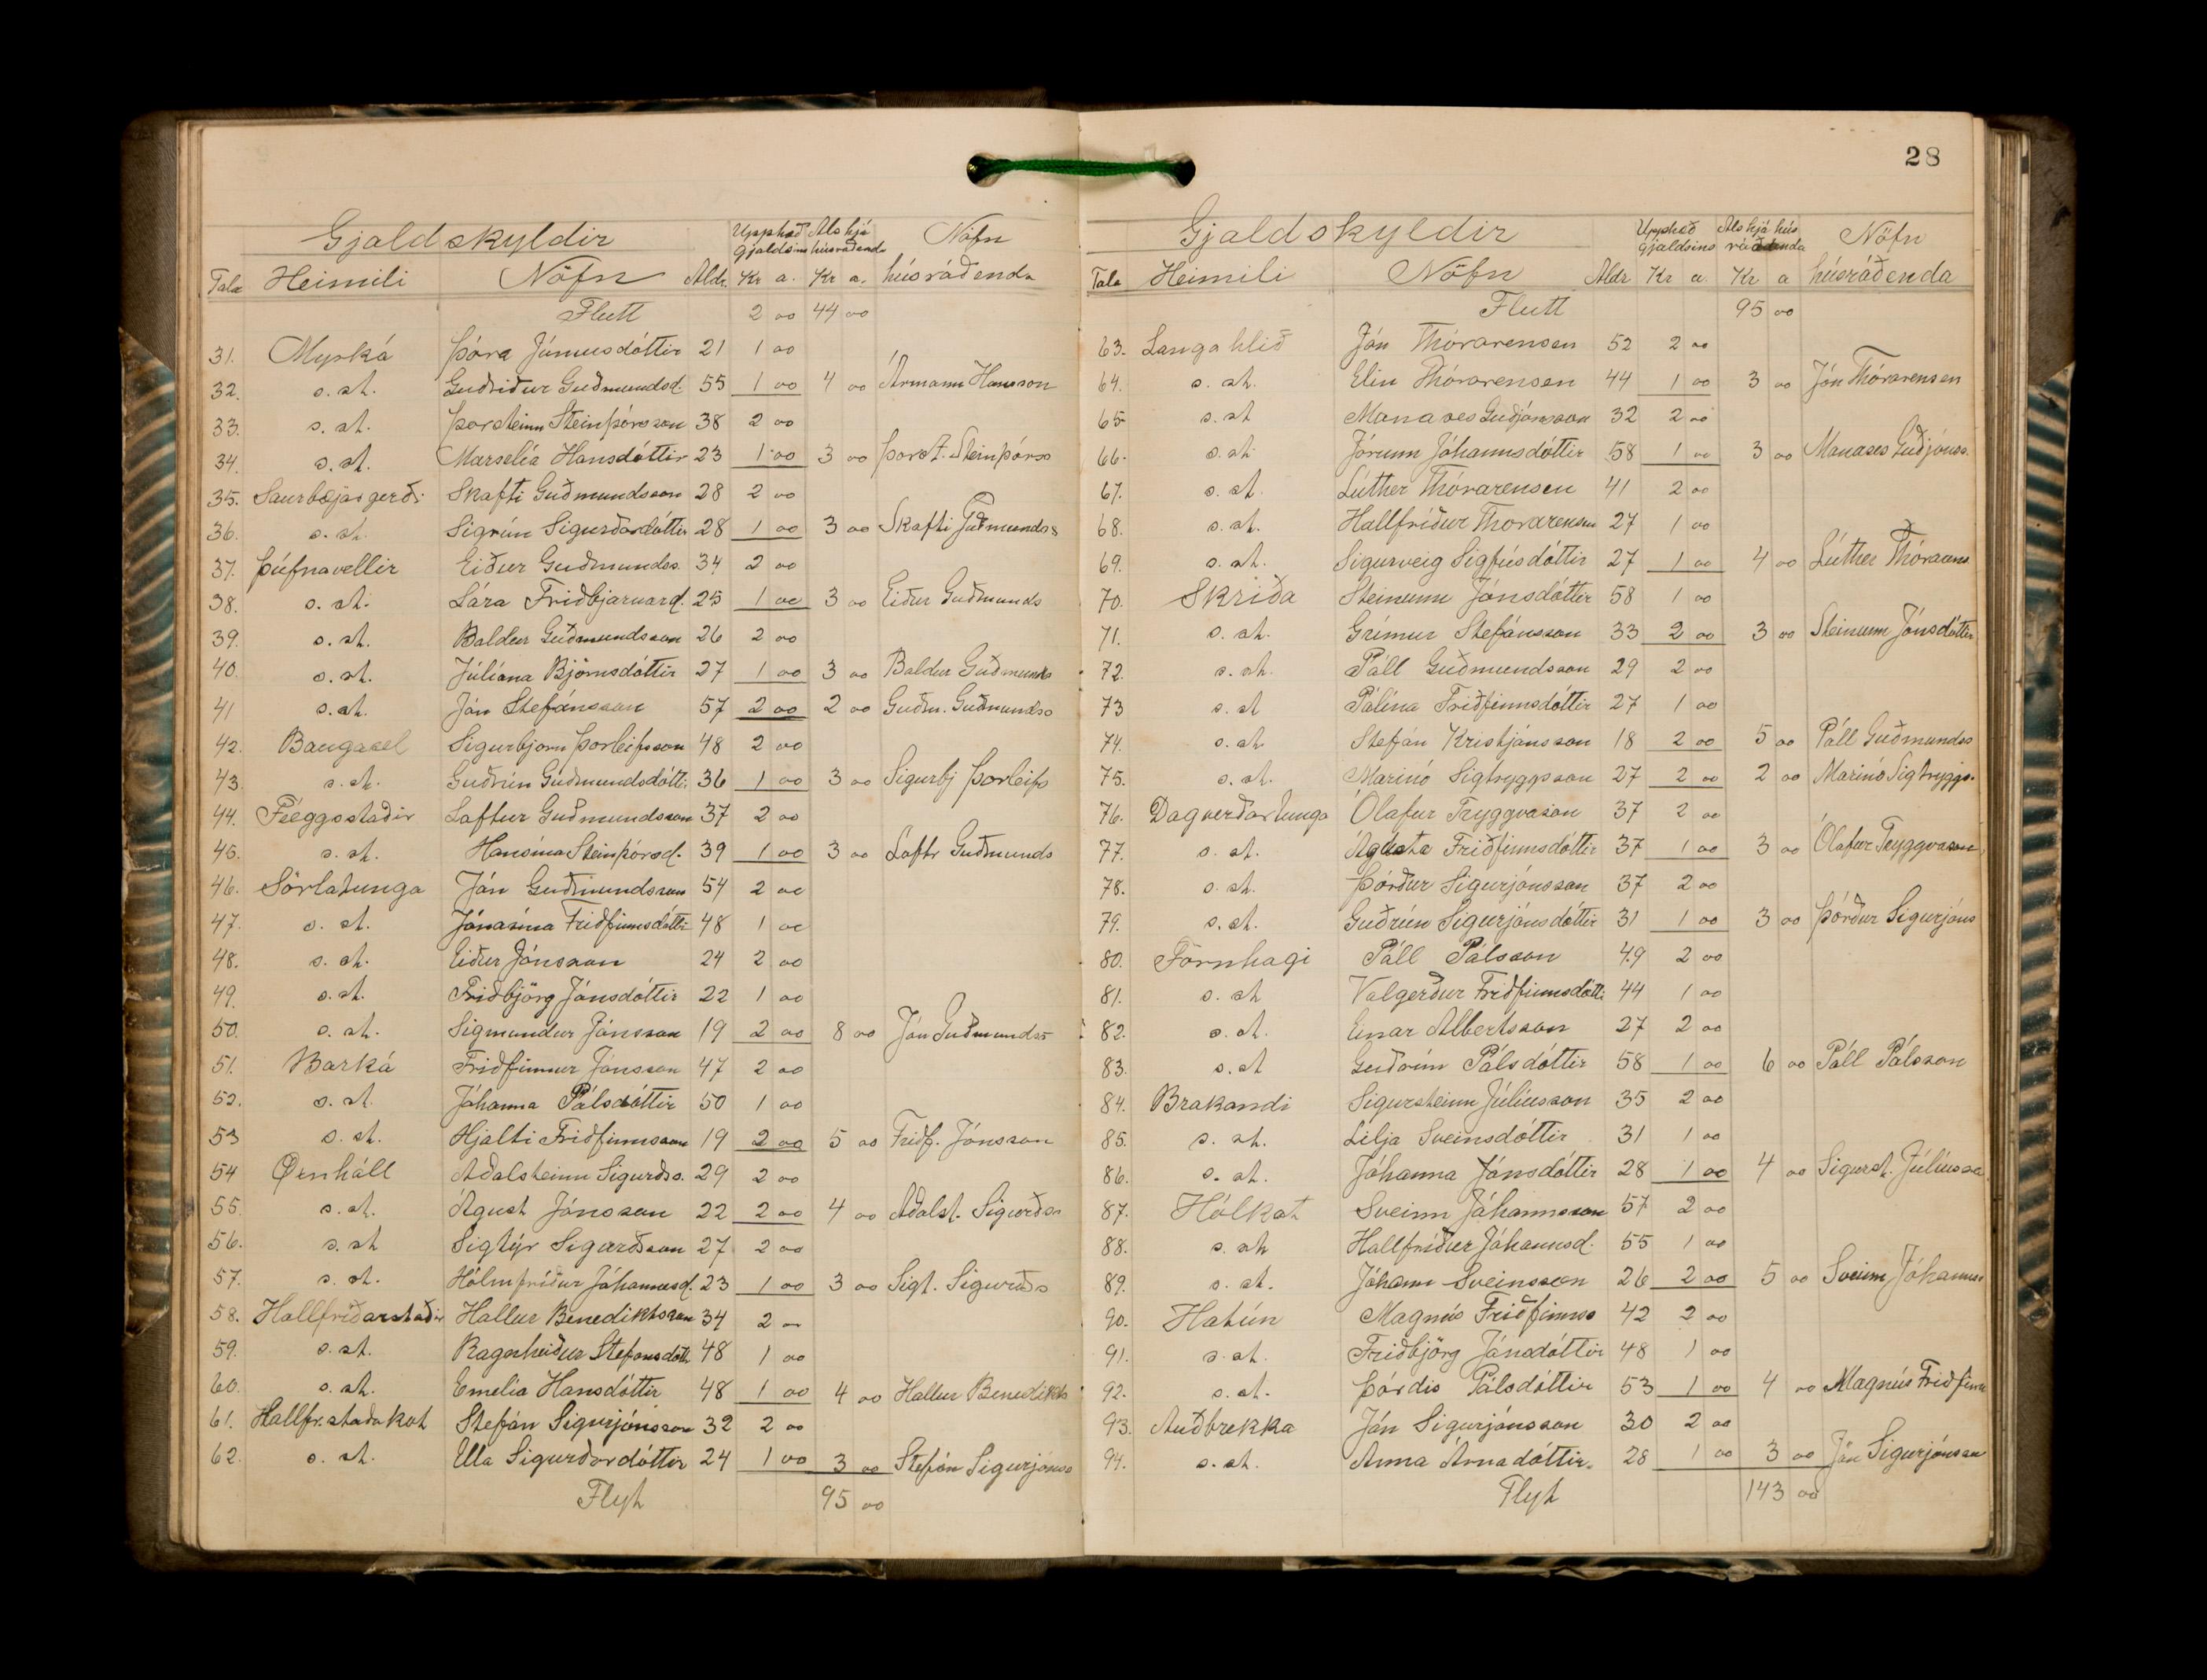 Gjaldskyldir Upphæð gjaldsins Als hjá húsráðenda Nöfn
Tala Heimili Nöfn Aldr. Kr a. Kr a. húsráðenda
Flutt 2 00 44 00
31. Myrká Þóra Júníusdóttir 21 1 00
32. s. st. Guðríður Guðmundsd. 55 1 00 4 00 Ármann Hansson
33. s. st. Þorsteinn Steinþórsson 38 2 00
34. s. st. Marselía Hansdóttir 23 1 00 3 00 Þorst. Steinþórss
35. Saurbæjargerði Skafti Guðmundsson 28 2 00
36. s. st. Sigrún Sigurðardóttir 28 1 00 3 00 Skafti Guðmundss
37. Þúfnavellir Eiður Guðmundss. 34 2 00
38. s. st. Lára Friðbjarnard. 25 1 00 3 00 Eiður Guðmunds
39. s. st. Baldur Guðmundsson 26 2 00
40. s. st. Júlíana Björnsdóttir 27 1 00 3 00 Baldur Guðmunds
41 s. st. Jón Stefánsson 57 2 00 2 00 Guðm. Guðmundss
42. Baugasel Sigurbjörn Þorleifsson 48 2 00
43. s. st. Guðrún Guðmundsdóttir 36 1 00 3 00 Sigurbj Þorleifs
44. Féeggsstaðir Loftur Guðmundsson 37 2 00
45. s. st. Hansína Steinþórsd. 39 1 00 3 00 Loftr Guðmunds
46. Sörlatunga Jón Guðmundsson 54 2 00
47. s. st. Jónasína Friðfinnsdóttir 48 1 00
48. s. st. Eiður Jónsson 24 2 00
49. s. st. Friðbjörg Jónsdóttir 22 1 00
50. s. st. Sigmundur Jónsson 19 2 00 8 00 Jón Guðmundss
51. Barká Friðfinnur Jónsson 47 2 00
52. s. st. Jóhanna Pálsdóttir 50 1 00
53 s. st. Hjalti Friðfinnsson 19 2 00 5 00 Friðf. Jónsson
54 Örnháll Aðalsteinn Sigurðss. 29 2 00
55. s. st. Ágúst Jónsson 22 2 00 4 00 Aðalst. Sigurðss
56. s. st Sigtýr Sigurðsson 27 2 00
57. s. st. Hólmfríður Jóhannesd. 23 1 00 3 00 Sigt. Sigurðs
58. Hallfríðarstaðir Hallur Benediktsson 34 2 00
59. s. st. Ragnheiður Stefánsdótt 48 1 00
60. s. st. Emelía Hansdóttir 48 1 00 4 00 Hallur Benedikts
61. Hallfr.staðakot Stefán Sigurjónsson 32 2 00
62. s. st. Ulla Sigurðardóttir 24 1 00 3 00 Stefán Sigurjónss
Flyt 95 00
28
Gjaldskyldir Upphæð gjaldsins Als hjá húsráðenda Nöfn
Tala Heimili Nöfn Aldr Kr a. Kr a húsráðenda
Flutt 95 00
63. Langahlíð Jón Thórarensen 52 2 00
64. s. st. Elín Thórarensen 44 1 00 3 00 Jón Thórarensen
65 s. st Manases Guðjónsson 32 2 00
66. s. st. Jórunn Jóhannsdóttir 58 1 00 3 00 Manases Guðjónss.
67. s. st. Lúther Thórarensen 41 2 00
68. s. st. Hallfríður Thorarensen 27 1 00
69. s. st. Sigurveig Sigfúsdóttir 27 1 00 4 00 Lúther Thórarens
70. Skriða Steinunn Jónsdóttir 58 1 00
71. s. st. Grímur Stefánsson 33 2 00 3 00 Steinunn Jónsdóttir
72. s. st. Páll Guðmundsson 29 2 00
73 s. st Pálína Friðfinnsdóttir 27 1 00
74. s. st. Stefán Kristjánsson 18 2 00 5 00 Páll Guðmundss
75. s. st. Marinó Sigtryggsson 27 2 00 2 00 Marinó Sigtryggs.
76. Dagverðartunga Ólafur Tryggvason 37 2 00
77. s. st. Ágústa Friðfinnsdóttir 37 1 00 3 00 Ólafur Tryggvason
78. s. st. Þórður Sigurjónsson 37 2 00
79. s. st. Guðrún Sigurjónsdóttir 31 1 00 3 00 Þórður Sigurjóns
80. Fornhagi Páll Pálsson 49 2 00
81. s. st Valgerður Friðfinnsdótti 44 1 00
82. s. st. Einar Albertsson 27 2 00
83. s. st Guðrún Pálsdóttir 58 1 00 6 00 Páll Pálsson
84. Brakandi Sigursteinn Júlíusson 35 2 00
85. s. st. Lilja Sveinsdóttir 31 1 00
86. s. st. Jóhanna Jónsdóttir 28 1 00 4 00 Sigurst. Júlíusso
87. Hólkot Sveinn Jóhannsson 57 2 00
88. s. st Hallfríður Jóhannsd. 55 1 00
89. s. st. Jóhann Sveinsson 26 2 00 5 00 Sveinn Jóhannss
90. Hátún Magnús Friðfinnss 42 2 00
91. s. st. Friðbjörg Jónsdóttir 48 1 00
92. s. st. Þórdís Pálsdóttir 53 1 00 4 00 Magnús Friðfinn
93. Auðbrekka Jón Sigurjónsson 30 2 00
94. s. st. Anna Árnadóttir. 28 1 00 3 00 Jón Sigurjónsson
Flyt 143 00